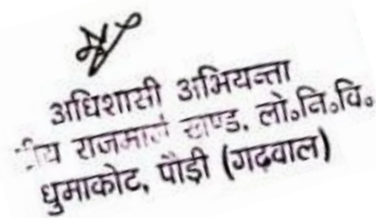 अधिशासी अभियन्ता
राजमार्ग खण्ड, लो०नि०वि०
धुमाकोट, पौड़ी (गढ़वाल)